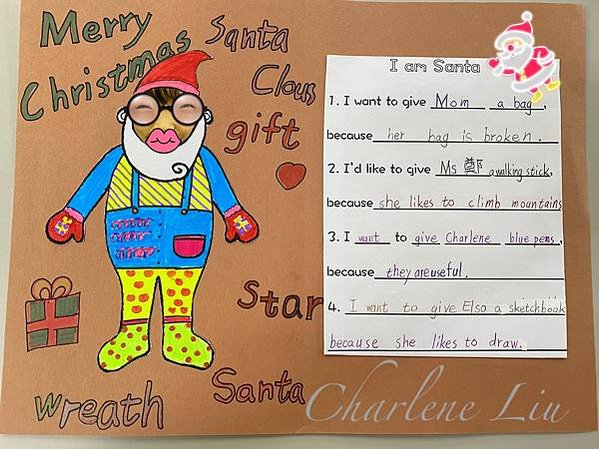 Merry
Christmas
Santa
Clous
gift
I am Santa
1. I want to give Mom a bag,
because her bag is broken.
2. I'd like to give Ms 鄭 a walking stick,
because she likes to climb mountains
3. I want to give Charlene blue pens,
because they are useful.
4. I want to give Elsa a sketchbook
because she likes to draw.
Star
Santa
wreath
Charlene Liu